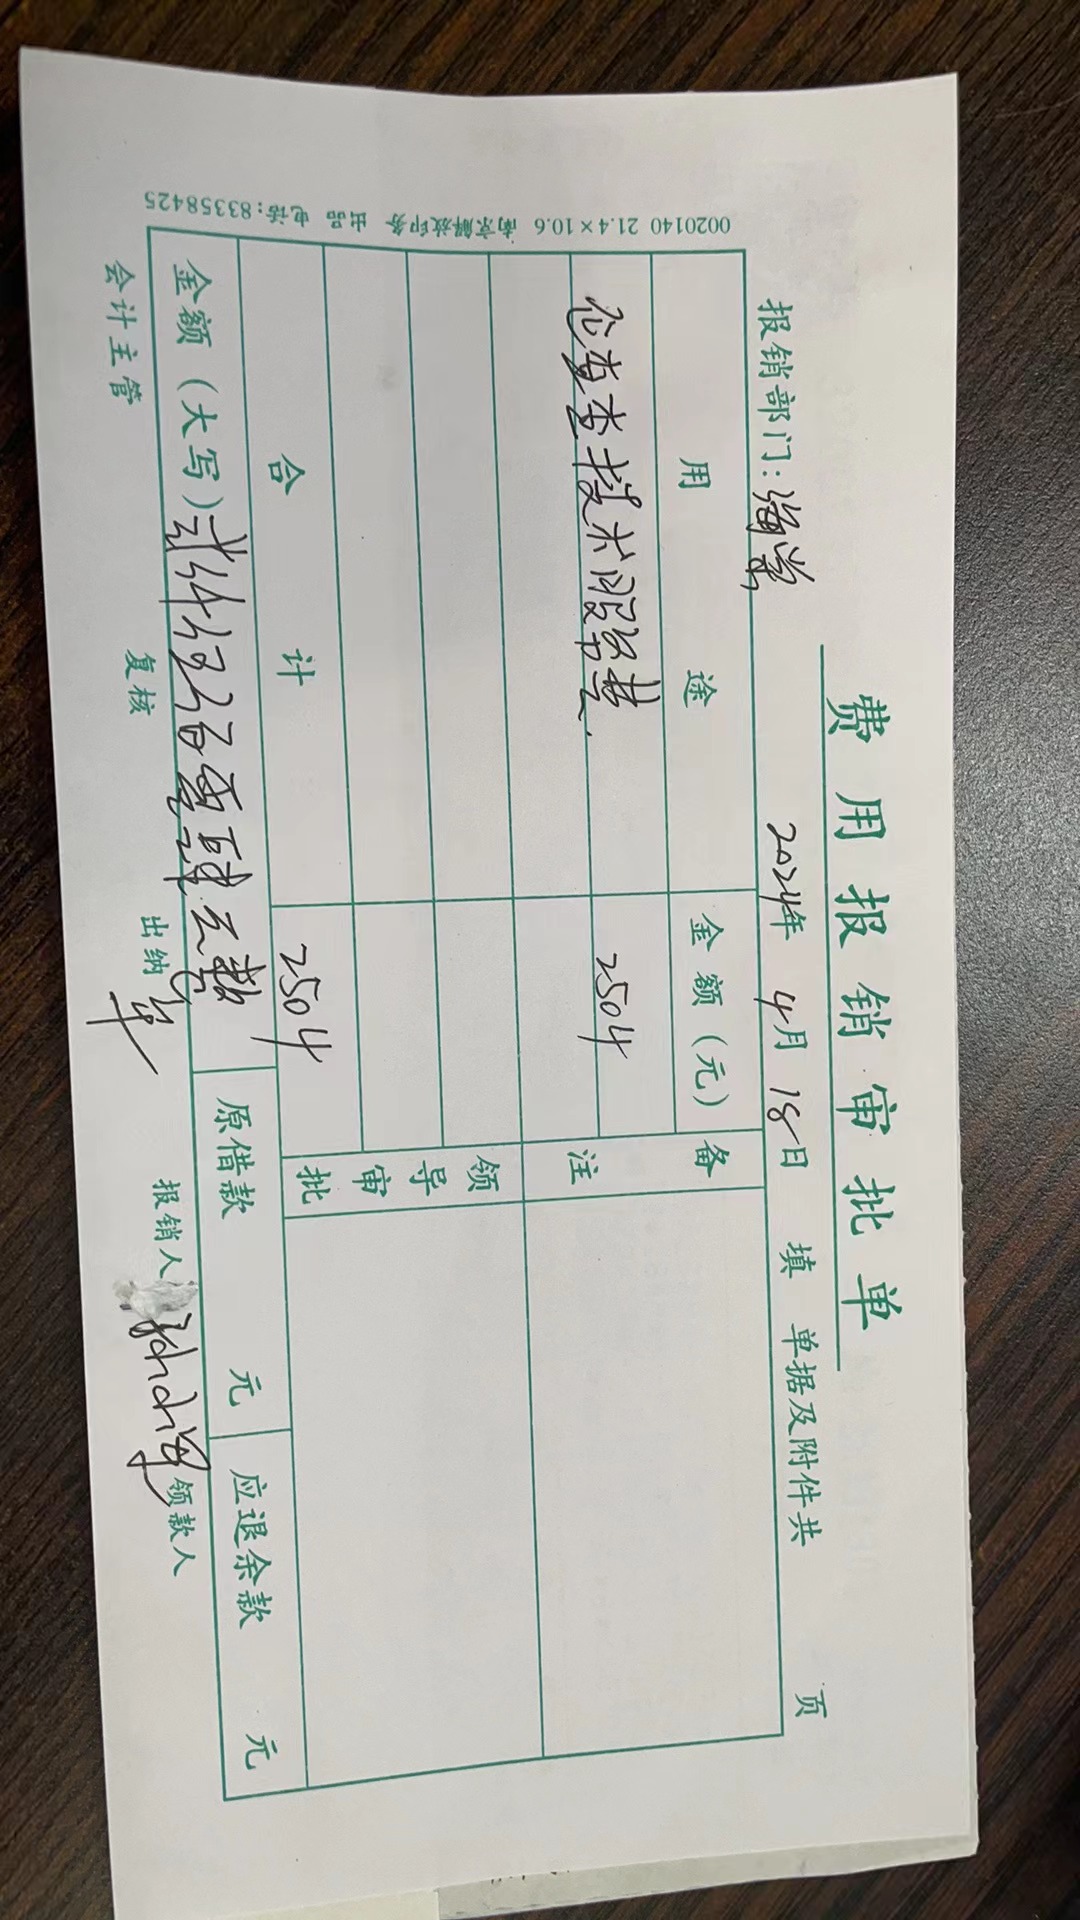 费用报销审批单
报销部门: 2024年 4月 18日 填 单据及附件共 页
用途 金额(元) 备注
企查查技术服务费 2504
领导审批
合计 2504
金额(大写)贰仟伍百零肆元整 原借款 元 应退余款 元
会计主管 复核 出纳 报销人 领款人
0020140 21.4×10.6 南京解放印务 出品 电话:83358425